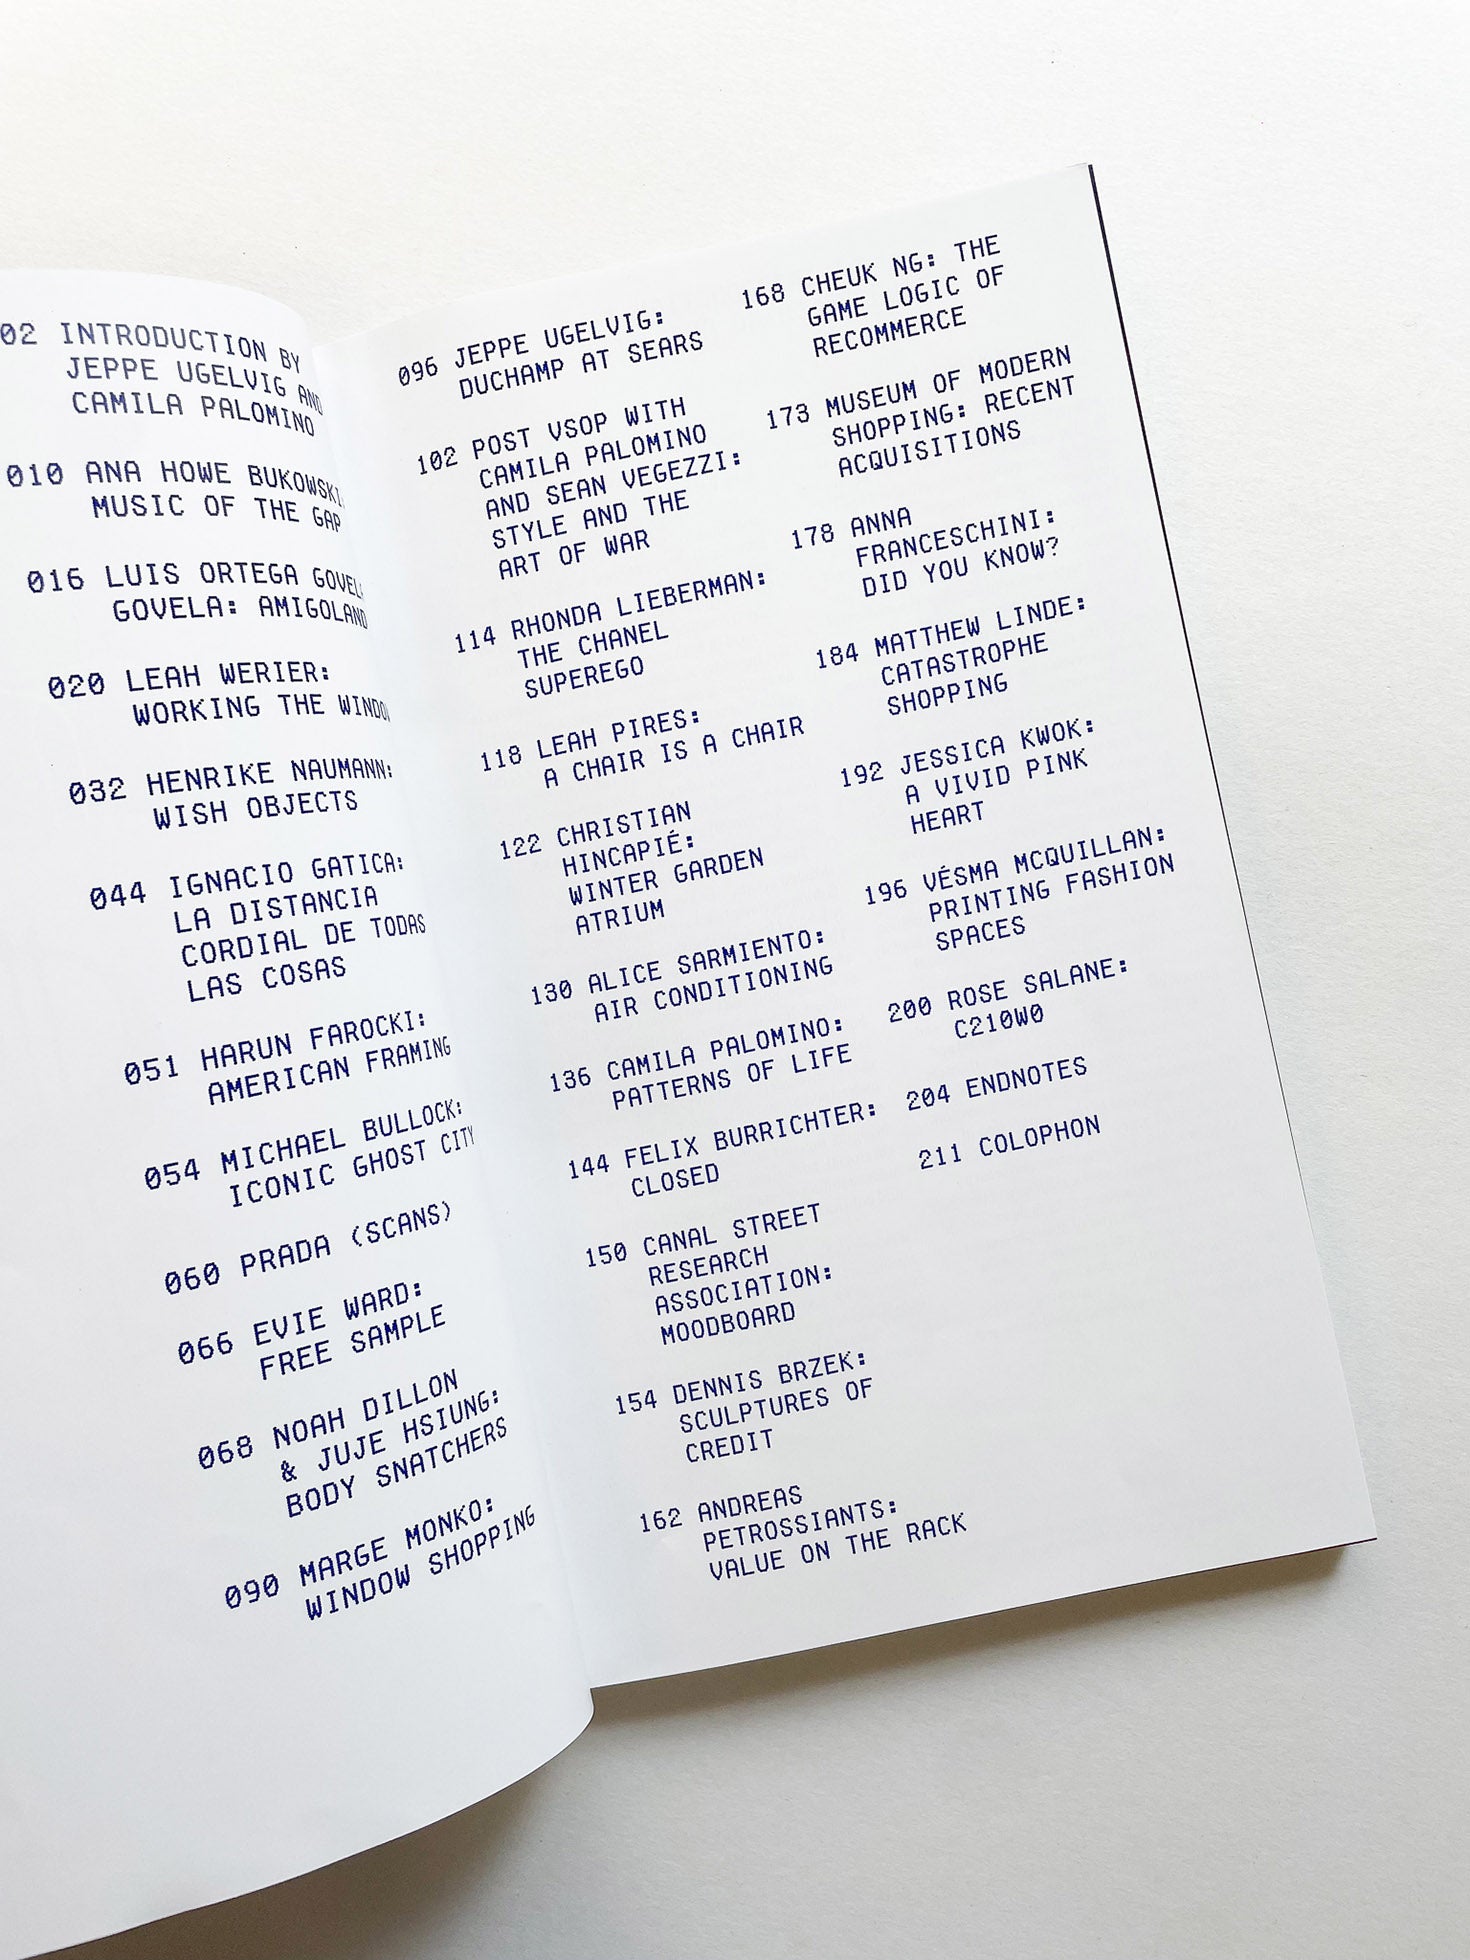 02 INTRODUCTION BY
JEPPE UGELVIG AND
CAMILA PALOMINO
010 ANA HOWE BUKOWSKI:
MUSIC OF THE GAP
016 LUIS ORTEGA
GOVELA: AMIGOLAND
020 LEAH WERIER:
WORKING THE WINDOW
032 HENRIKE NAUMANN:
WISH OBJECTS
044 IGNACIO GATICA:
LA DISTANCIA
CORDIAL DE TODAS
LAS COSAS
051 HARUN FAROCKI:
AMERICAN FRAMING
054 MICHAEL BULLOCK:
ICONIC GHOST CITY
060 PRADA (SCANS)
066 EVIE WARD:
FREE SAMPLE
068 NOAH DILLON
& JUJE HSIUNG:
BODY SNATCHERS
090 MARGE MONKO:
WINDOW SHOPPING
096 JEPPE UGELVIG:
DUCHAMP AT SEARS
102 POST VSOP WITH
CAMILA PALOMINO
AND SEAN VEGEZZI:
STYLE AND THE
ART OF WAR
114 RHONDA LIEBERMAN:
THE CHANEL
SUPEREGO
118 LEAH PIRES:
A CHAIR IS A CHAIR
122 CHRISTIAN
HINCAPIÉ:
WINTER GARDEN
ATRIUM
130 ALICE SARMIENTO:
AIR CONDITIONING
136 CAMILA PALOMINO:
PATTERNS OF LIFE
144 FELIX BURRICHTER:
CLOSED
150 CANAL STREET
RESEARCH
ASSOCIATION:
MOODBOARD
154 DENNIS BRZEK:
SCULPTURES OF
CREDIT
162 ANDREAS
PETROSSIANTS:
VALUE ON THE RACK
168 CHEUK NG: THE
GAME LOGIC OF
RECOMMERCE
173 MUSEUM OF MODERN
SHOPPING: RECENT
ACQUISITIONS
178 ANNA
FRANCESCHINI:
DID YOU KNOW?
184 MATTHEW LINDE:
CATASTROPHE
SHOPPING
192 JESSICA KWOK:
A VIVID PINK
HEART
196 VÉSMA MCQUILLAN:
PRINTING FASHION
SPACES
200 ROSE SALANE:
C210W0
204 ENDNOTES
211 COLOPHON